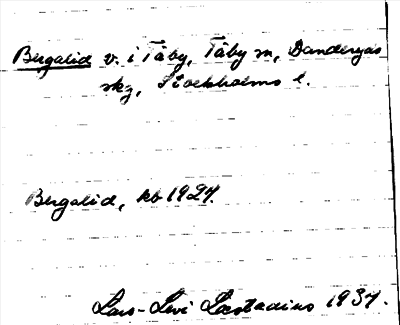 Bergalid v. i Täby, Täby sn, Danderyds
skg, Stockholms l.
Bergalid, kb 1927.
Lars-Levi Læstadius 1937.